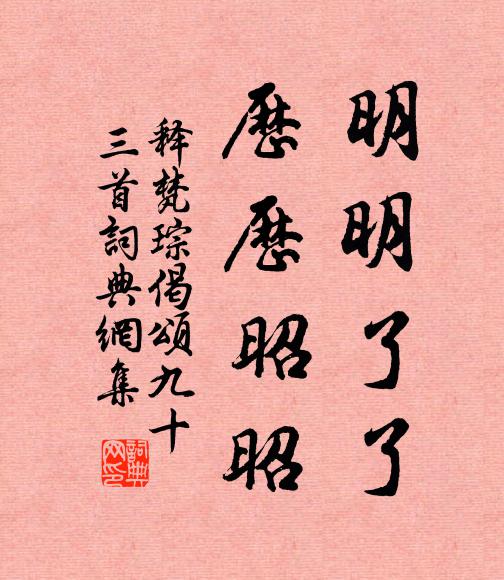 明明了了
歷歷昭昭
释梵琮偈頌九十
三首詞典網集
詞典
網印